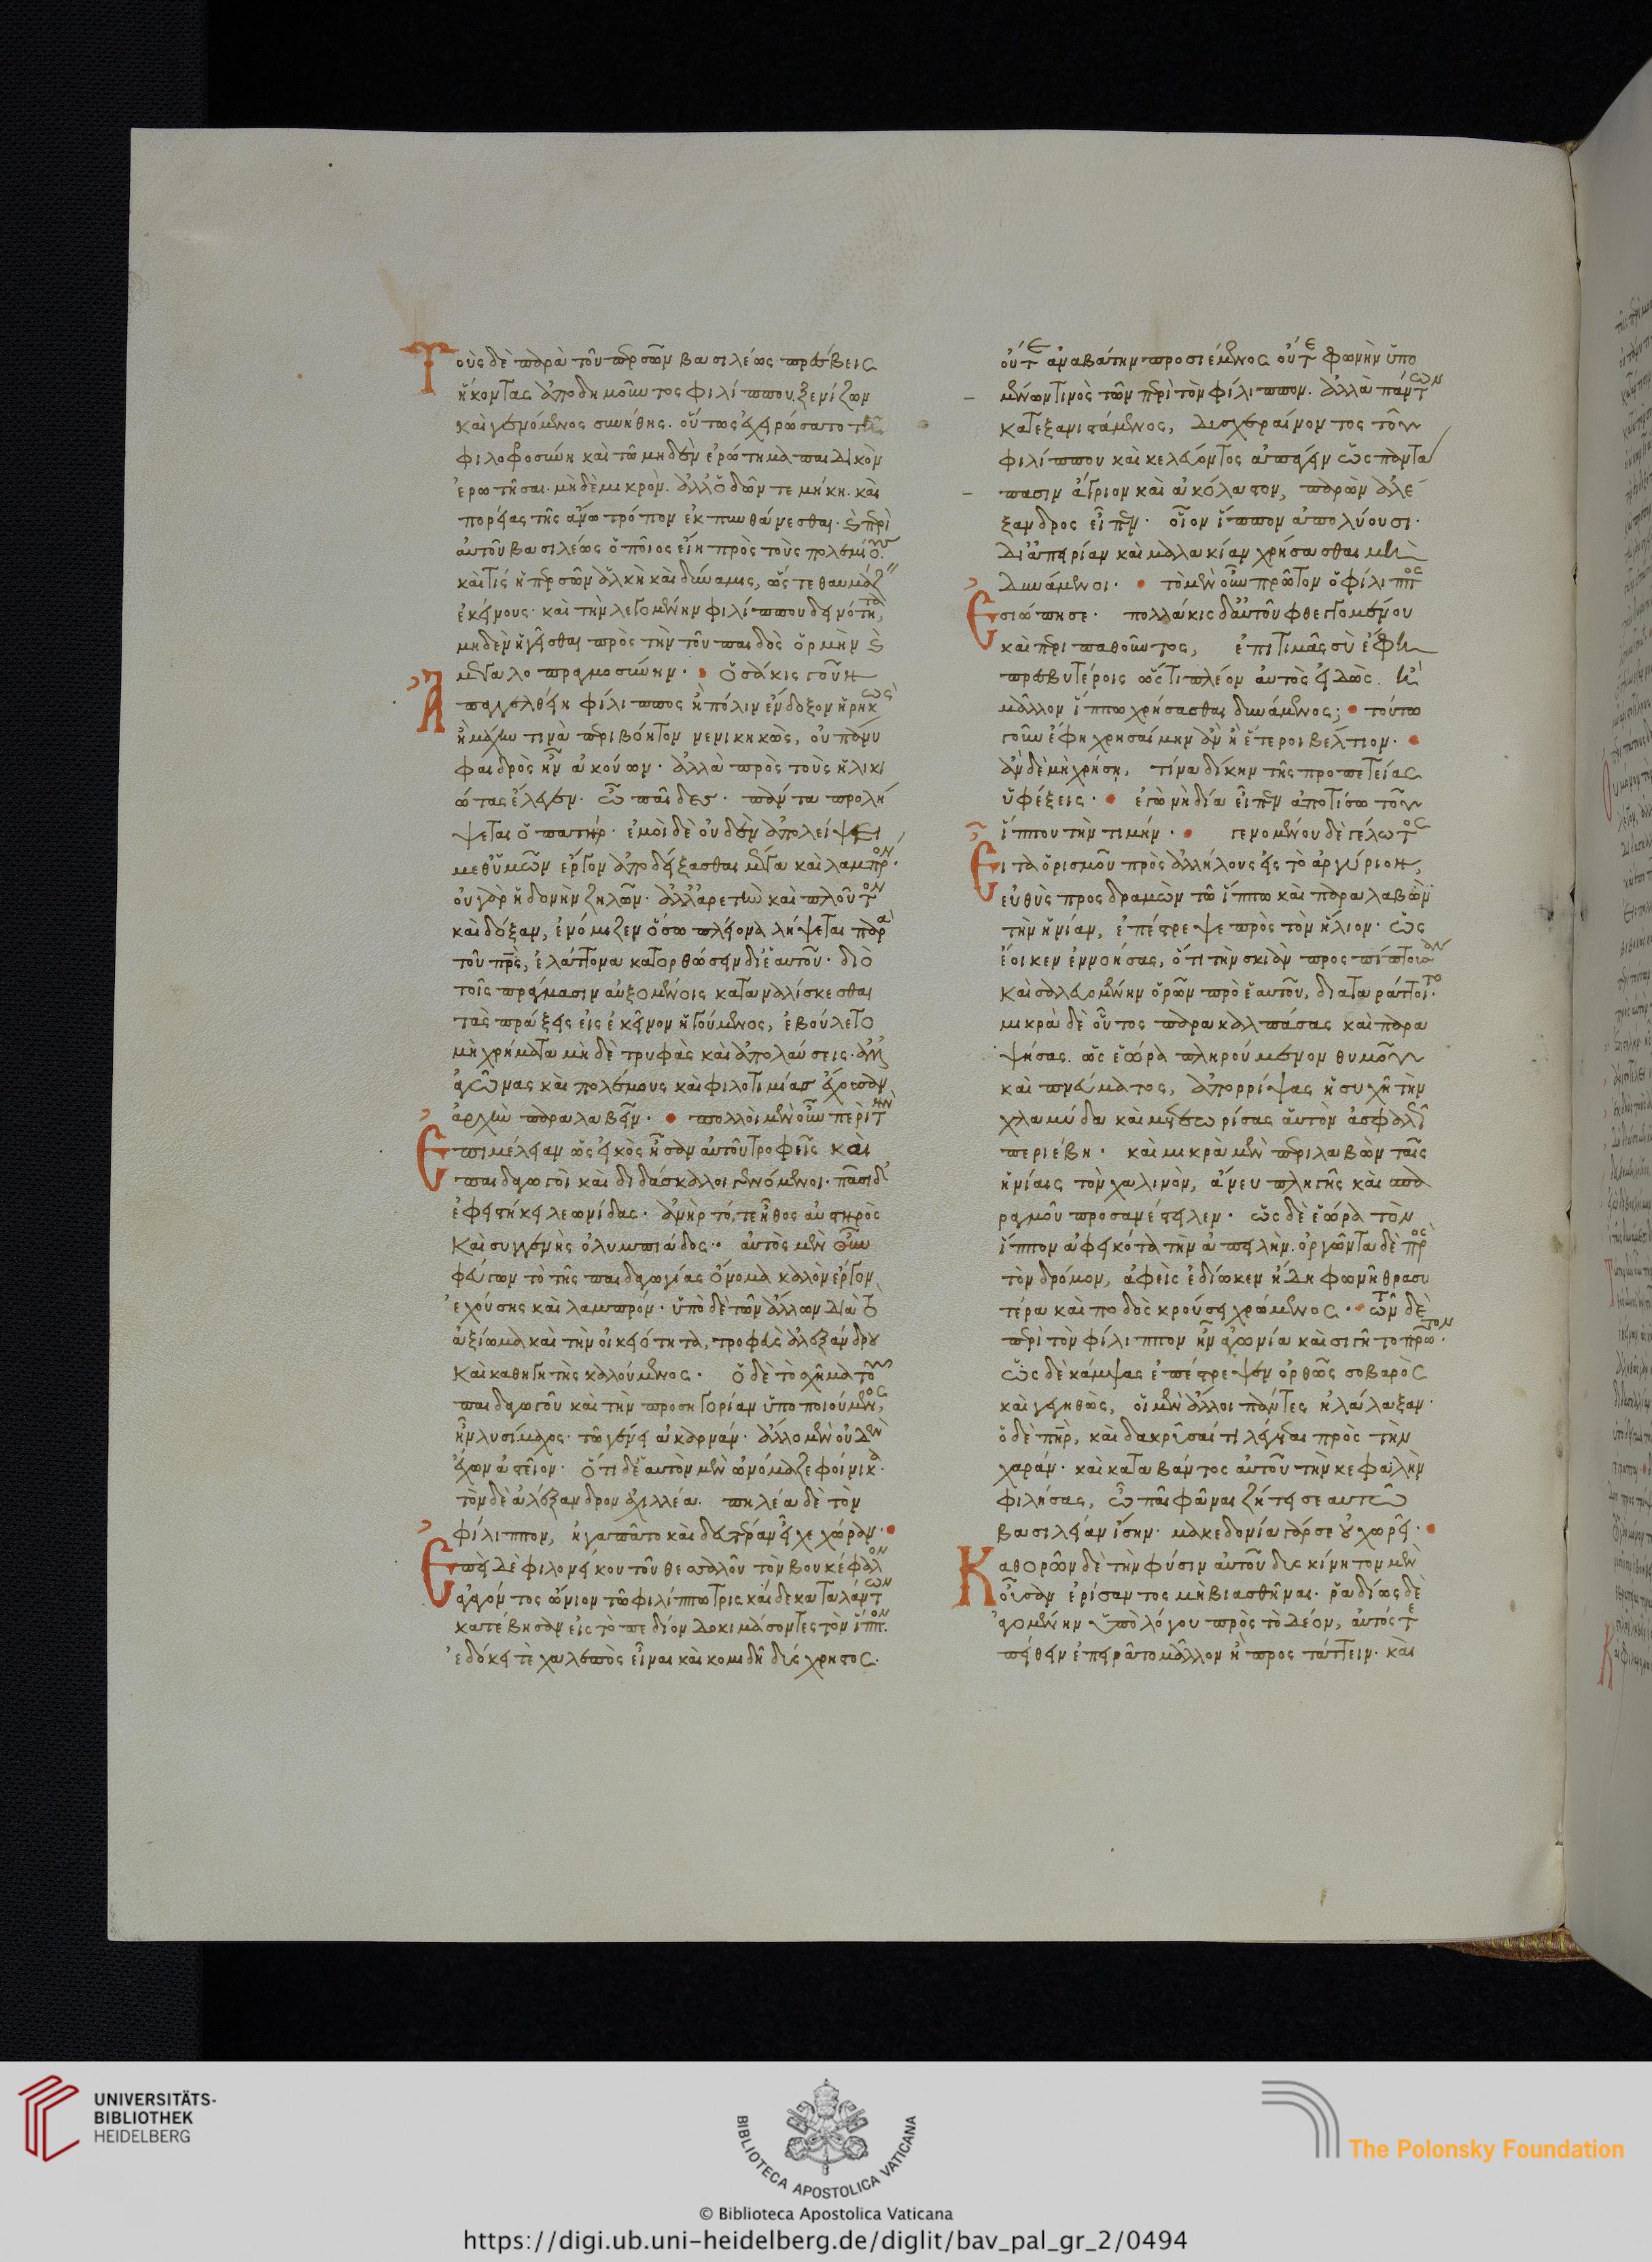 Τοὺς δὲ παρὰ τοῦ περσῶν βασιλέως πρέσβεις
ἥκοντας ἀποδημοῦντος φιλίππου ξενίζων
καὶ γενόμενος συνήθης· οὕτως ἐχειρώσατο τῇ
φιλοφροσύνη καὶ τῶ μηδὲν ἐρώτημα παιδικὸν
ἐρωτῆσαι· μὴ δὲ μικρὸν· ἀλλ' ὁδῶν τε μήκη· καὶ
πορείας τῆς ἄνω τρόπον ἐκπυνθάνεσθαι· καὶ περὶ
αὐτοῦ βασιλέως ὁποῖος εἴη πρὸς τοὺς πολεμίους·
καὶ τίς ἡ περσῶν ἀλκὴ καὶ δύναμις, ὥστε θαυμάζειν
ἐκείνους· καὶ τὴν λεγομένην φιλίππου δεινότητα,
μηδὲν ἡγεῖσθαι πρὸς τὴν τοῦ παιδὸς ὁρμὴν καὶ
μεγαλοπραγμοσύνην· ὁσάκις γοῦν
Ἀπαγγελθείη φίλιππος ἢ πόλιν ἔνδοξον ἡρηκὼς
ἢ μάχην τινὰ περιβόητον νενικηκὼς, οὐ πάνυ
φαιδρὸς ἦν ἀκούων· ἀλλὰ πρὸς τοὺς ἡλικι
ώτας ἔλεγεν· ὦ παῖδες· πάντα προλή
ψεται ὁ πατήρ· ἐμοὶ δὲ οὐδὲν ἀπολείψει
μεθ' ὑμῶν ἔργον ἀποδείξασθαι μέγα καὶ λαμπρόν·
οὐ γὰρ ἡδονὴν ζηλῶν· ἀλλ' ἀρετὴν καὶ πλοῦτον
καὶ δόξαν, ἐνόμιζεν ὅσω πλείονα λήψεται παρὰ
τοῦ πρς, ἐλάττονα κατορθώσειν δι' ἑαυτοῦ· διὸ
τοῖς πράγμασιν αὐξομένοις καταναλίσκεσθαι
τὰς πράξεις εἰς ἐκεῖνον ἡγούμενος, ἐβούλετο
μὴ χρήματα μὴ δὲ τρυφὰς καὶ ἀπολαύσεις· ἀλλ'
ἀγῶνας καὶ πολέμους καὶ φιλοτιμίας ἔχουσαν
ἀρχὴν παραλαβεῖν· πολλοὶ μὲν οὖν περὶ τὴν
Ἐπιμέλειαν ὡς εἰκὸς ἦσαν αὐτοῦ τροφεῖς καὶ
παιδαγωγοὶ καὶ διδάσκαλοι γενόμενοι· πᾶσι δ'
ἐφειστήκει λεωνίδας· ἀνὴρ τό, τε ἦθος αὐστηρὸς
καὶ συγγενὴς ὀλυμπιάδος· αὐτὸς μὲν οὖν
φεύγων τὸ τῆς παιδαγωγίας ὄνομα καλὸν ἔργον
ἐχούσης καὶ λαμπρόν· ὑπὸ δὲ τῶν ἄλλων διὰ τὸ
ἀξίωμα καὶ τὴν οἰκειότητα, τροφεὺς ἀλεξάνδρου
καὶ καθηγητὴς καλούμενος· ὁ δὲ τὸ σχῆμα τοῦ
παιδαγωγοῦ καὶ τὴν προσηγορίαν ὑποποιούμενος,
ἦν λυσίμαχος· τῶ γένει ἀκαρνάν· ἄλλο μὲν οὐδὲν
ἔχων ἀστεῖον· ὅτι δ' ἑαυτὸν μὲν ὠνόμαζε φοίνικα·
τὸν δὲ ἀλέξανδρον ἀχιλλέα· πηλέα δὲ τὸν
φίλιππον, ἠγαπᾶτο καὶ δευτέραν εἶχε χώραν·
Ἐπεὶ δὲ φιλονείκου τοῦ θεσσαλοῦ τὸν βουκέφαλον
ἀγαγόντος ὤνιον τῶ φιλίππω τρισκαίδεκα ταλάντων
κατέβησαν εἰς τὸ πεδίον δοκιμάσοντες τὸν ἵππον·
ἐδόκει τὲ χαλεπὸς εἶναι καὶ κομιδῆ δύσχρηστος·
οὔτε ἀναβάτην προσιέμενος οὔτε φωνὴν ὑπο
μένων τινὸς τῶν περὶ τὸν φίλιππον· ἀλλὰ πάντων
κατεξανιστάμενος, δυσχεραίνοντος τοῦ
φιλίππου καὶ κελεύοντος ἀπάγειν ὡς παντά
πασιν ἄγριον καὶ ἀκόλαστον, παρὼν ἀλέ
ξανδρος εἶπεν· οἷον ἵππον ἀπολύουσι·
δι' ἀπειρίαν καὶ μαλακίαν χρήσασθαι μὴ
δυνάμενοι· τὸ μὲν οὖν πρῶτον ὁ φίλιππος
Ἐσιώπησε· πολλάκις δ' αὐτοῦ φθεγγομένου
καὶ περιπαθοῦντος, ἐπιτιμᾶς σὺ ἔφη
πρεσβυτέροις ὥς τι πλέον αὐτὸς εἰδὼς· ἢ
μᾶλλον ἵππω χρήσασθαι δυνάμενος; τούτω
γοῦν ἔφη χρησαίμην ἂν ἢ ἕτεροι βέλτιον·
ἂν δὲ μὴ χρήση, τίνα δίκην τῆς προπετείας
ὑφέξεις· ἐγὼ νὴ δία εἶπεν ἀποτίσω τοῦ
ἵππου τὴν τιμήν· γενομένου δὲ γέλωτος
Εἶτα ὁρισμοῦ πρὸς ἀλλήλους εἰς τὸ ἀργύριον,
εὐθὺς προσδραμὼν τῶ ἵππω καὶ παραλαβὼν
τὴν ἡνίαν, ἐπέστρεψε πρὸς τὸν ἥλιον· ὡς
ἔοικεν ἐννοήσας, ὅτι τὴν σκιὰν προσπίπτουσαν
καὶ σαλευομένην ὁρῶν πρὸ ἑαυτοῦ, διαταράττοιτο·
μικρὰ δὲ οὕτος παρακαλπάσας καὶ παρα
ψήσας· ὡς ἑώρα πληρούμενον θυμοῦ
καὶ πνεύματος, ἀπορρίψας ἡσυχῆ τὴν
χλαμύδα καὶ μετεωρίσας αὑτὸν ἀσφαλῶς
περιέβη· καὶ μικρὰ μὲν περιλαβὼν ταῖς
ἡνίαις τὸν χαλινὸν, ἄνευ πληγῆς καὶ σπα
ραγμοῦ προσανέστειλεν· ὡς δὲ ἑώρα τὸν
ἵππον ἀφεικότα τὴν ἀπειλὴν· ὀργῶντα δὲ πρὸς
τὸν δρόμον, ἀφεὶς ἐδίωκεν ἤδη φωνῆ θρασυ
τέρα καὶ ποδὸς κρούσει χρώμενος· τῶν δὲ
περὶ τὸν φίλιππον ἦν ἀγωνία καὶ σιγὴ τὸ πρῶτον·
ὡς δὲ κάμψας ἐπέστρεψεν ὀρθῶς σοβαρὸς
καὶ γεγηθὼς, οἱ μὲν ἄλλοι πάντες ἠλάλαξαν·
ὁ δὲ πηρ, καὶ δακρῦσαί τι λέγεται πρὸς τὴν
χαράν· καὶ καταβάντος αὐτοῦ τὴν κεφαλὴν
φιλήσας, ὦ παῖ φᾶναι ζήτει σεαυτῶ
βασιλείαν ἴσην· μακεδονία γάρ σε οὐ χωρεῖ·
Καθορῶν δὲ τὴν φύσιν αὐτοῦ δυσκίνητον μὲν
οὖσαν ἐρίσαντος μὴ βιασθῆναι· ῥαδίως δὲ
ἀγομένην ὑπὸ λόγου πρὸς τὸ δέον, αὐτός τε
πείθειν ἐπειρᾶτο μᾶλλον ἢ προστάττειν· καὶ
UNIVERSITÄTS-
BIBLIOTHEK
HEIDELBERG
BIBLIOTECA APOSTOLICA VATICANA
The Polonsky Foundation
© Biblioteca Apostolica Vaticana
https://digi.ub.uni-heidelberg.de/diglit/bav_pal_gr_2/0494